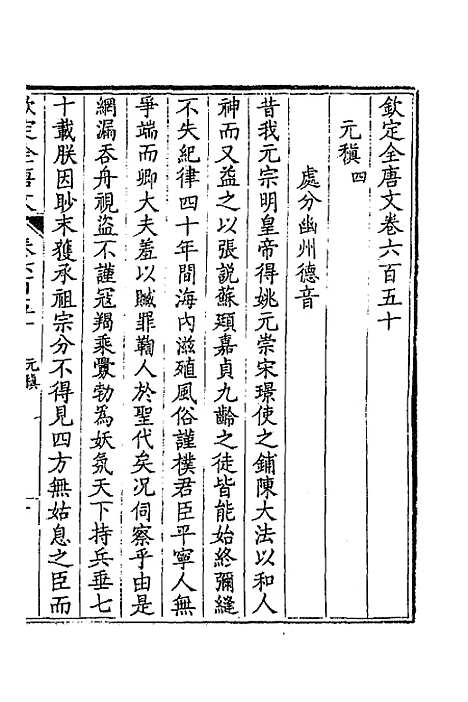 欽定全唐文卷六百五十
元稹四
處分幽州德音
昔我元宗明皇帝得姚元崇宋璟使之鋪陳大法以和人
神而又益之以張說蘇頲嘉貞九齡之徒皆能始終彌縫
不失紀律四十年間海內滋殖風俗謹樸君臣平寧人無
爭端而卿大夫羞以贓罪鞫人於聖代矣況伺察乎由是
網漏吞舟視盜不謹寇羯乘釁勃為妖氛天下持兵垂七
十載朕因眇末獲承祖宗分不得見四方無姑息之臣而
欽定全唐文 卷六百五十 元稹 一